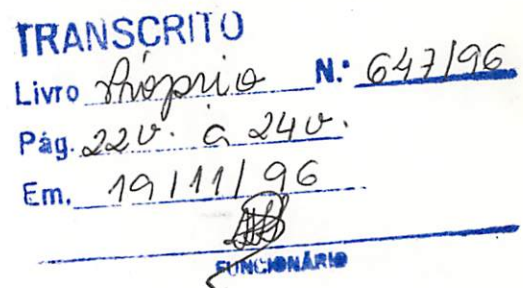 TRANSCRITO
Livro Próprio N.º 647/96
Pág. 22v. a 24v.
Em. 19/11/96
FUNCIONÁRIO